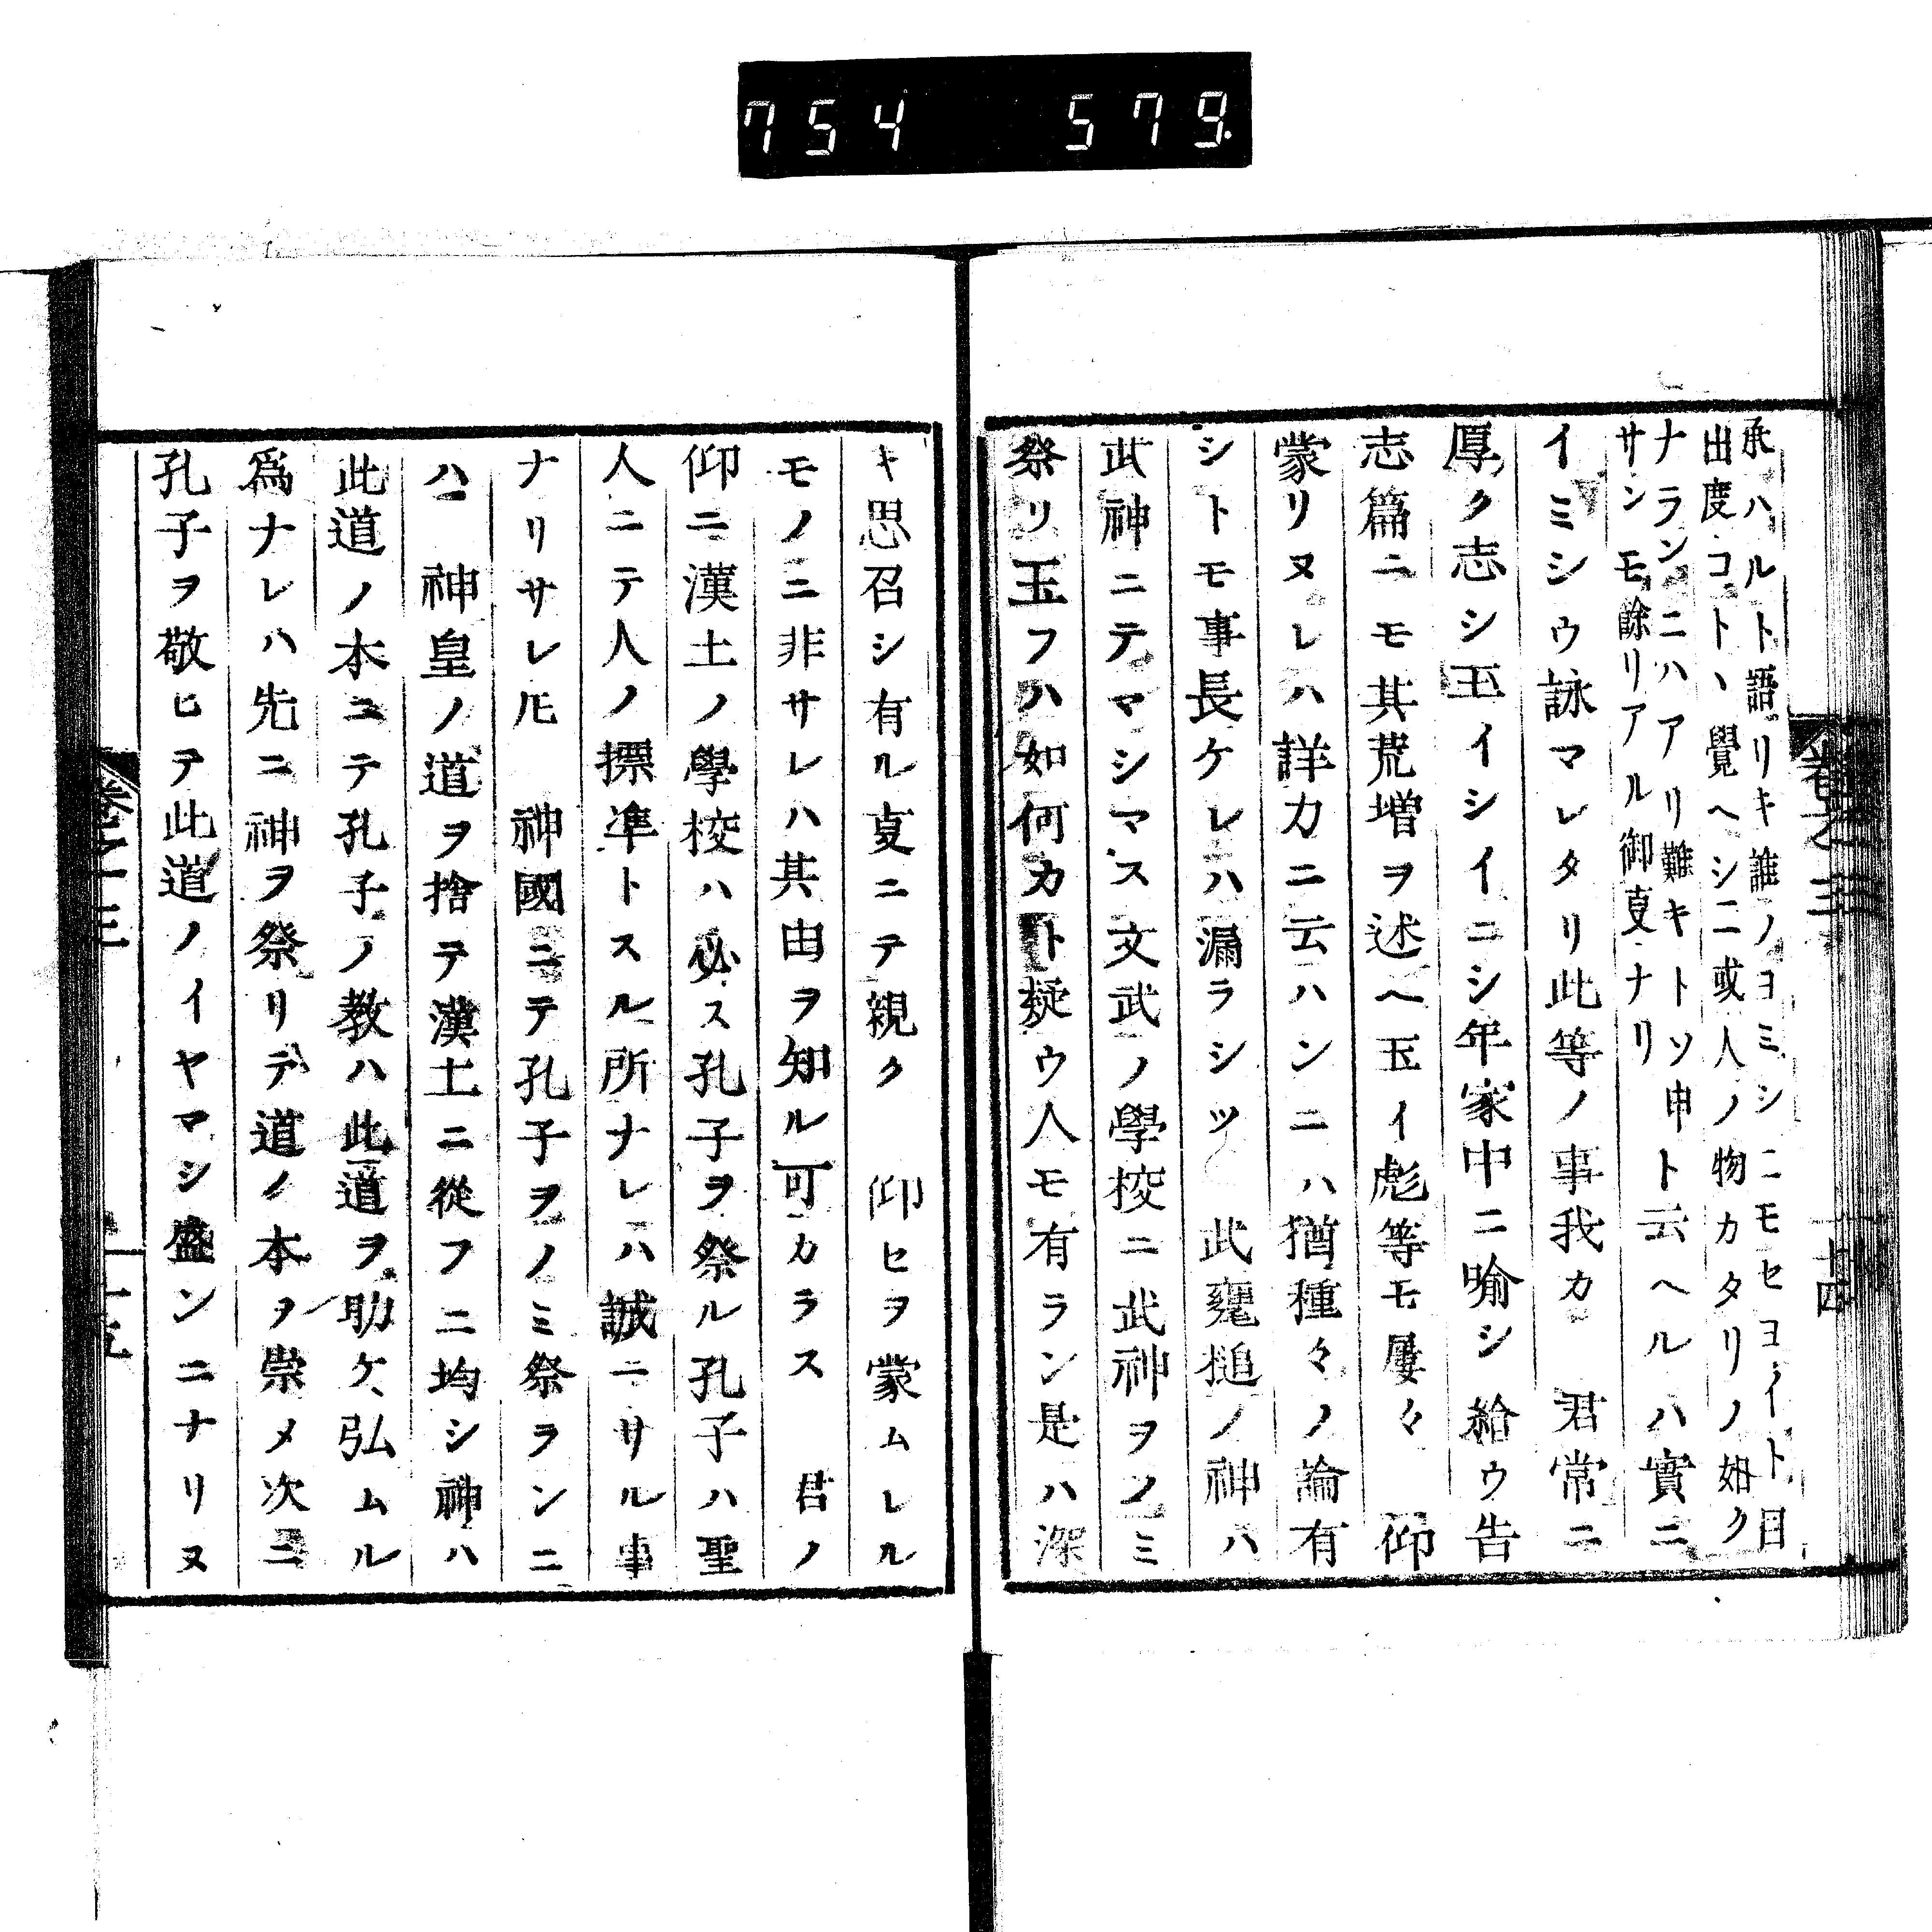 754 579
承ハルト語リキ誰ノヨミシニモセヨイト目
出度コトヽ覺ヘシニ或人ノ物カタリノ如ク
ナランニハアリ難キトソ申ト云ヘルハ實ニ
サンモ餘リアル御叓ナリ
イミシウ詠マレタリ此等ノ事我カ 君常ニ
厚ク志シ玉イシイニシ年家中ニ喩シ給ウ告
志篇ニモ其荒増ヲ述ヘ玉イ彪等モ屡々 仰
蒙リヌレハ詳カニ云ハンニハ猶種々ノ論有
シトモ事長ケレハ漏ラシツ 武甕槌ノ神ハ
武神ニテマシマス文武ノ學校ニ武神ヲノミ
祭リ玉フハ如何カト疑ウ人モ有ラン是ハ深
卷之三 十四
キ思召シ有ル叓ニテ親ク 仰ヒヲ蒙ムレル
モノニ非サレハ其由ヲ知ル可カラス 君ノ
仰ニ漢土ノ學校ハ必ス孔子ヲ祭ル孔子ハ聖
人ニテ人ノ摽準トスル所ナレハ誠ニサル事
ナリサレ𪜈 神國ニテ孔子ヲノミ祭ランニ
ハ 神皇ノ道ヲ捨テ漢土ニ從フニ均シ神ハ
此道ノ本ニテ孔子ノ教ハ此道ヲ助ケ弘ムル
爲ナレハ先ニ神ヲ祭リテ道ノ本ヲ崇メ次ニ
孔子ヲ敬ヒテ此道ノイヤマシ盛ンニナリヌ
卷之三 十五